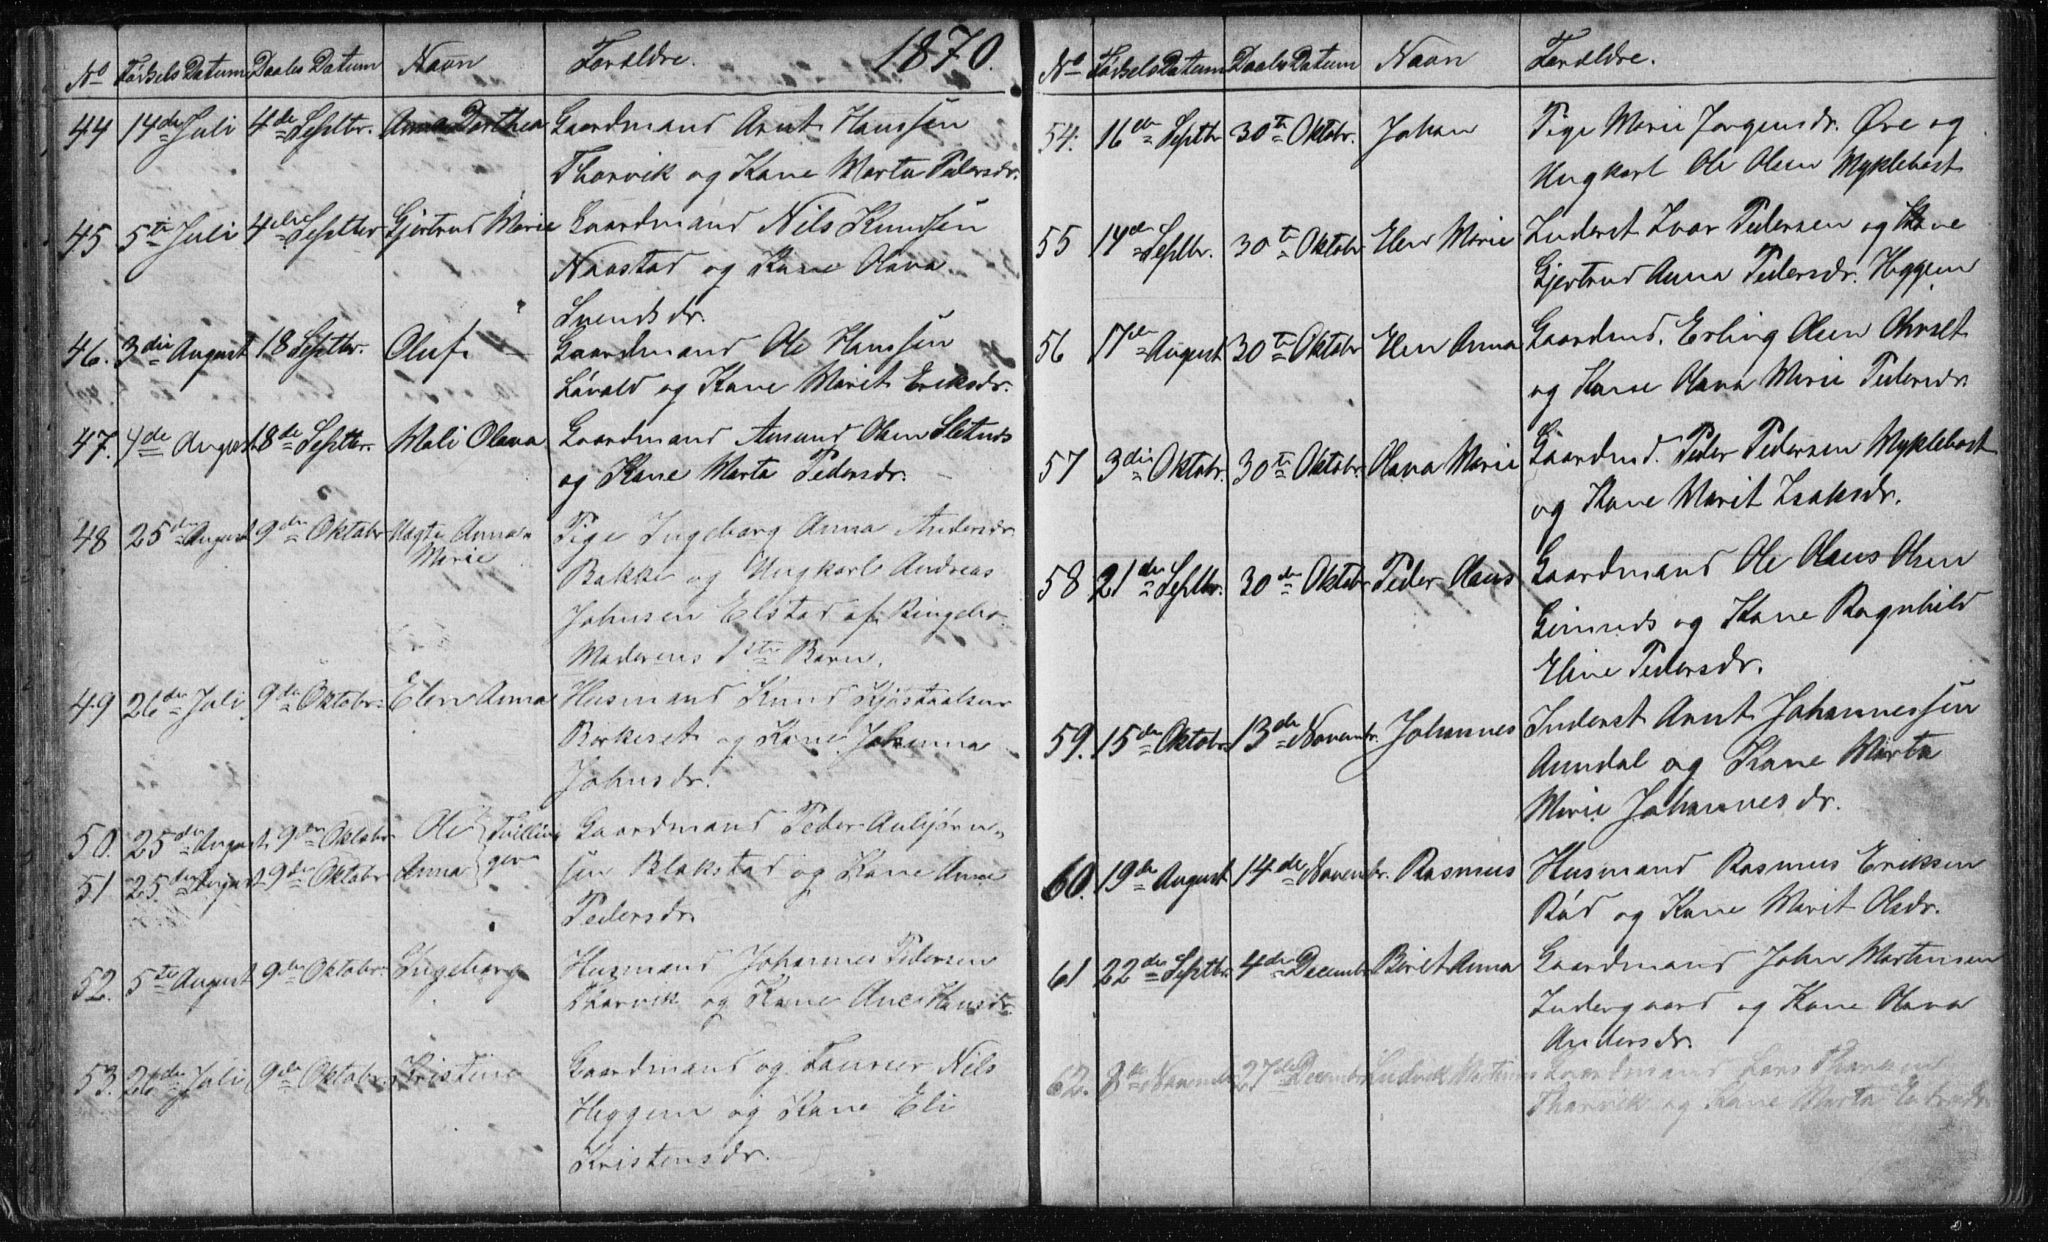 1870.
No Fødsels Datum Daabs Datum Navn Forældre.
44 14de Juli 4de Septbr. Anna Dorthea Gaardmand Arnt Hanssen
Thorvik og Kone Marta Pedersdr.
45 5te Juli 4de Septbr Gjertrud Marie Gaardmand Nils Knudsen
Naastad og Kone Olava
Svendsdr.
46. 3die August 18 Septbr. Oluf. Gaardmand Ole Hanssen
Løvold og Kone Marit Eriksdr.
47. 4de August 18de Septbr. Mali Olava Gaardmand Amund Olsen Sletnæs
og Kone Marta Pedersdr.
48 25de August 9de Oktobr Anna Pige Ingeborg Anna Andersdr.
Marie Bakke og Ungkarl Andreas
Johnsen Elstad af Ringebo.
Moderens 1ste Barn.
49 26de Juli 9de Oktobr. Elen Anna Husmand Knud
og Kone Johanna
Johnsdr.
50. 25de August 9de Oktobr Ole Tvillin Gaardmand Peder Aubjørn-
51 25de August 9de Oktobr Anna ger sen Blakstad og Kone Anne
Pedersdr.
52. 5te August 9de Oktobr. Ingeborg Husmand Johannes Pedersen
Thorvik og Kone Ane Hansdr.
53. 26de Juli 9de Oktobr. Kristine Gaardmand og Nils
Heggem og Kone Eli
Kristensdr.
No Fødsels Datum Daabs Datum Navn Forældre.
54. 16de Septbr 30te Oktobr. Johan Pige Marie Jørgensdr. Øre og
Ungkarl Ole Olsen Myklebost
55 14de Septbr. 30te Oktobr Elen Marie Inderst Ivar Pedersen og Kone
Gjertrud Anna Pedersdr. Heggem
56 17de August 30te Oktobr Elen Anna Gaardmd. Erling Olsen
og Kone Olava Marie Pedersdr.
57 3die Oktobr. 30te Oktobr. Olava Marie Gaardmd. Peder Pedersen Myklebost
og Kone Marit Isaksdr.
58 21de Septbr. 30de Oktobr Peder Olaus Gaardmand Ole Olaus Olsen
Gimnæs og Kone Ragnhild
Eline Pedersdr.
59. 15de Oktobr. 13de Novembr. Johannes Inderst Arnt Johannessen
Aundal og Kone Marta
Marie Johannesdr.
60. 19de August 14de Novembr. Rasmus Husmand Rasmus Eriksen
Rød og Kone Marit Olsdr.
61 22de Septbr. 4de Decembr Berit Anna Gaardmand John Martinsen
Indergaard og Kone Olava
Andersdr.
62. 8de Novembr 27de Decembr Ludvik Martinus Gaardmand Lars
Thorvik og Kone Marta